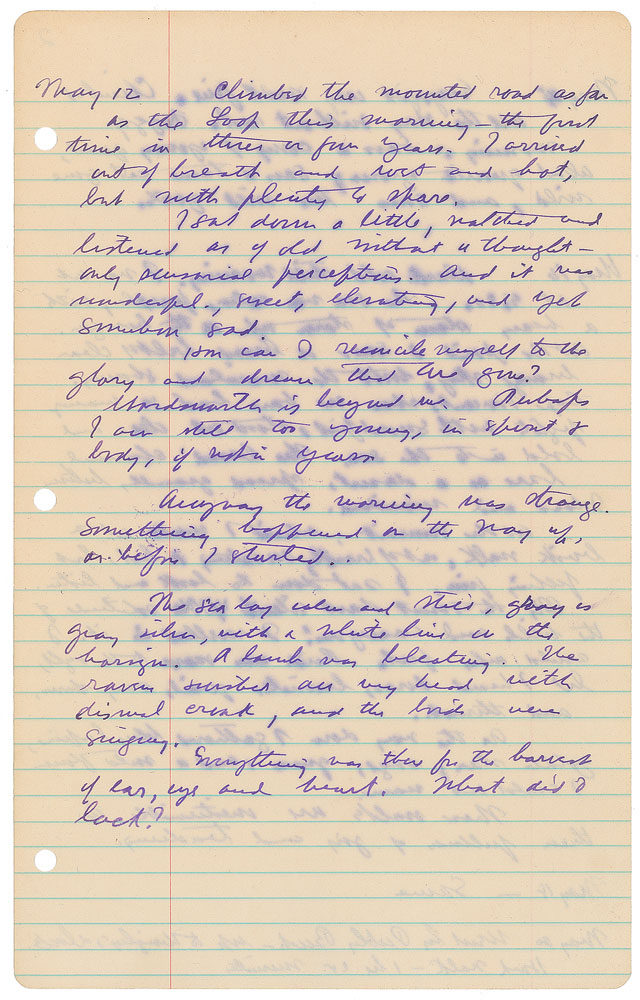 May 12 Climbed the mounted road as far
as the Loop this morning – the first
time in three or four years. I arrived
out of breath and wet and hot,
but with plenty to spare.
I sat down a little, watched and
listened as of old, without a thought –
only sensorial perceptions. And it was
wonderful, sweet, elevating, and yet
somehow sad.
How can I reconcile myself to the
glory and dream that are gone?
Wordsworth is beyond me. Perhaps
I am still too young, in spirit &
body, if not in years
Anyway the morning was strange.
Something happened on the way up,
or before I started..
The sea lay calm and still, gray as
gray silver, with a white line on the
horizon. A lamb was bleating. The
ravens over my head with
dismal croak, and the birds were
singing.
Everything was there for the harvest
of ear, eye and heart. What did I
lack?